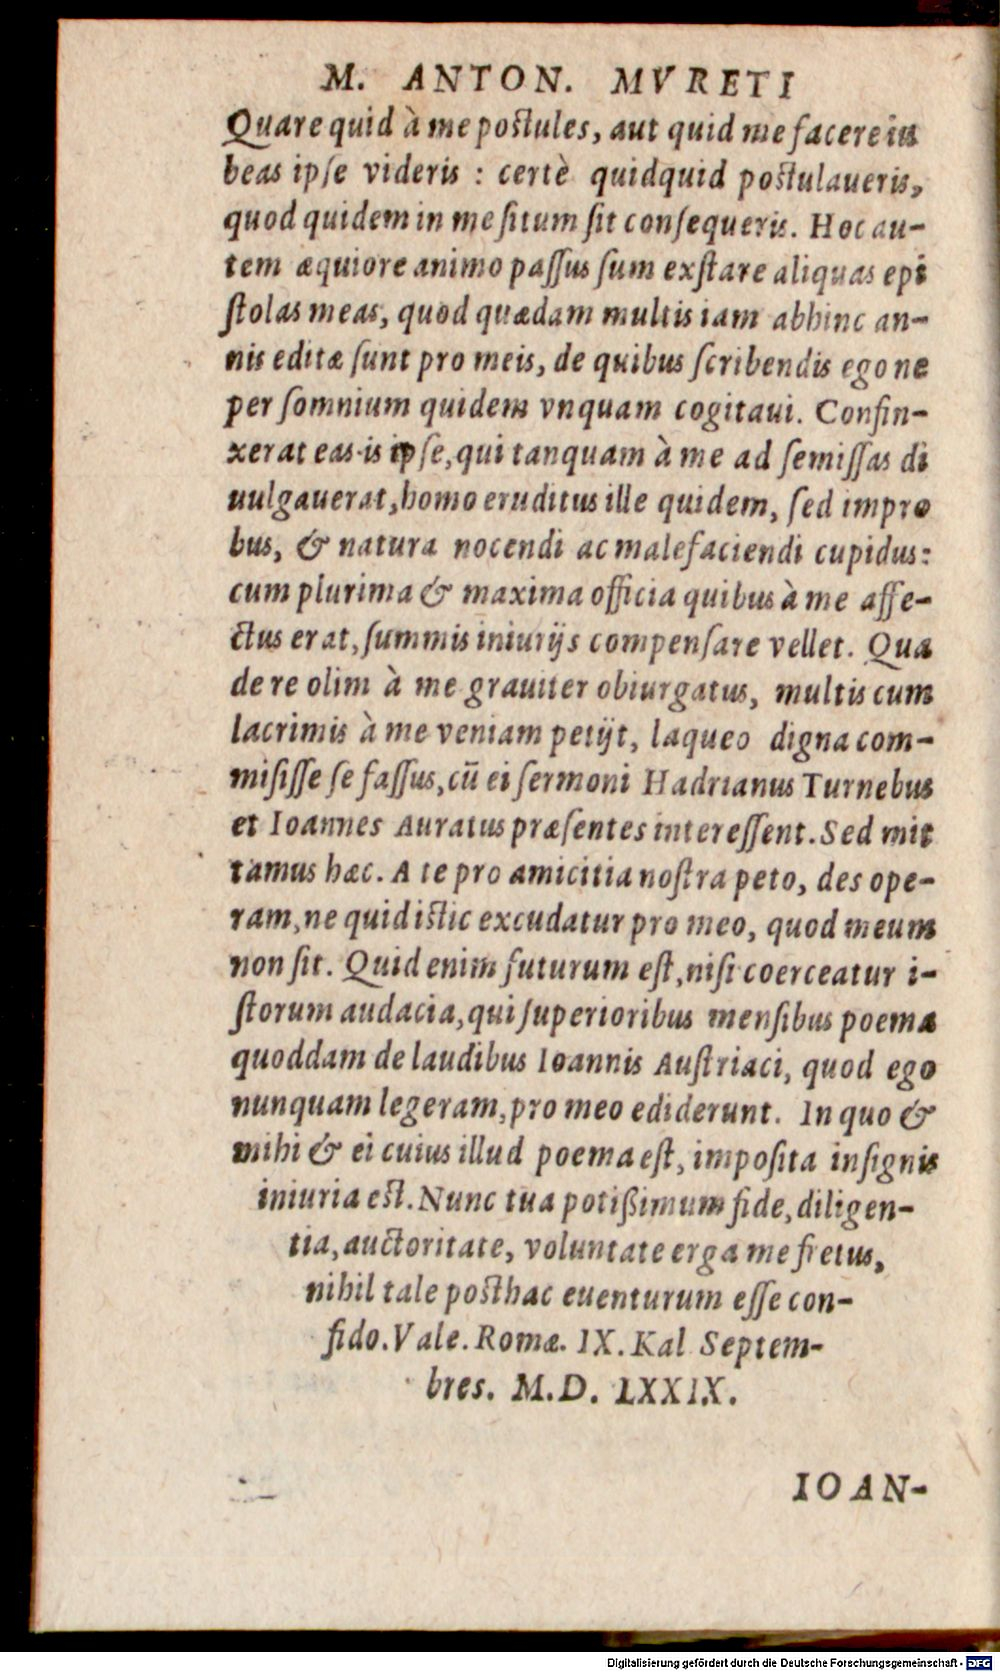 M. ANTON. MVRETI
Quare quid à me postules, aut quid me facere iu
beas ipse videris : certè quidquid postulaueris,
quod quidem in me situm sit consequeris. Hoc au-
tem æquiore animo passus sum exstare aliquas epi
stolas meas, quod quædam multis iam abhinc an-
nis editæ sunt pro meis, de quibus scribendis ego ne
per somnium quidem vnquam cogitaui. Confin-
xerat eas is ipse, qui tanquam à me ad semissas di
uulgauerat, homo eruditus ille quidem, sed impro
bus, & natura nocendi ac malefaciendi cupidus:
cum plurima & maxima officia quibus à me affe-
ctus erat, summis iniurijs compensare vellet. Qua
de re olim à me grauiter obiurgatus, multis cum
lacrimis à me veniam petijt, laqueo digna com-
misisse se fassus, cū ei sermoni Hadrianus Turnebus
et Ioannes Auratus præsentes interessent. Sed mit
tamus hæc. A te pro amicitia nostra peto, des ope-
ram, ne quid istic excudatur pro meo, quod meum
non sit. Quid enim futurum est, nisi coerceatur i-
storum audacia, qui superioribus mensibus poema
quoddam de laudibus Ioannis Austriaci, quod ego
nunquam legeram, pro meo ediderunt. In quo &
mihi & ei cuius illud poema est, imposita insignis
iniuria est. Nunc tua potißimum fide, diligen-
tia, auctoritate, voluntate erga me fretus,
nihil tale posthac euenturum esse con-
fido. Vale. Romæ. IX. Kal Septem-
bres. M.D. LXXIX.
IOAN-
Digitalisierung gefördert durch die Deutsche Forschungsgemeinschaft - DFG